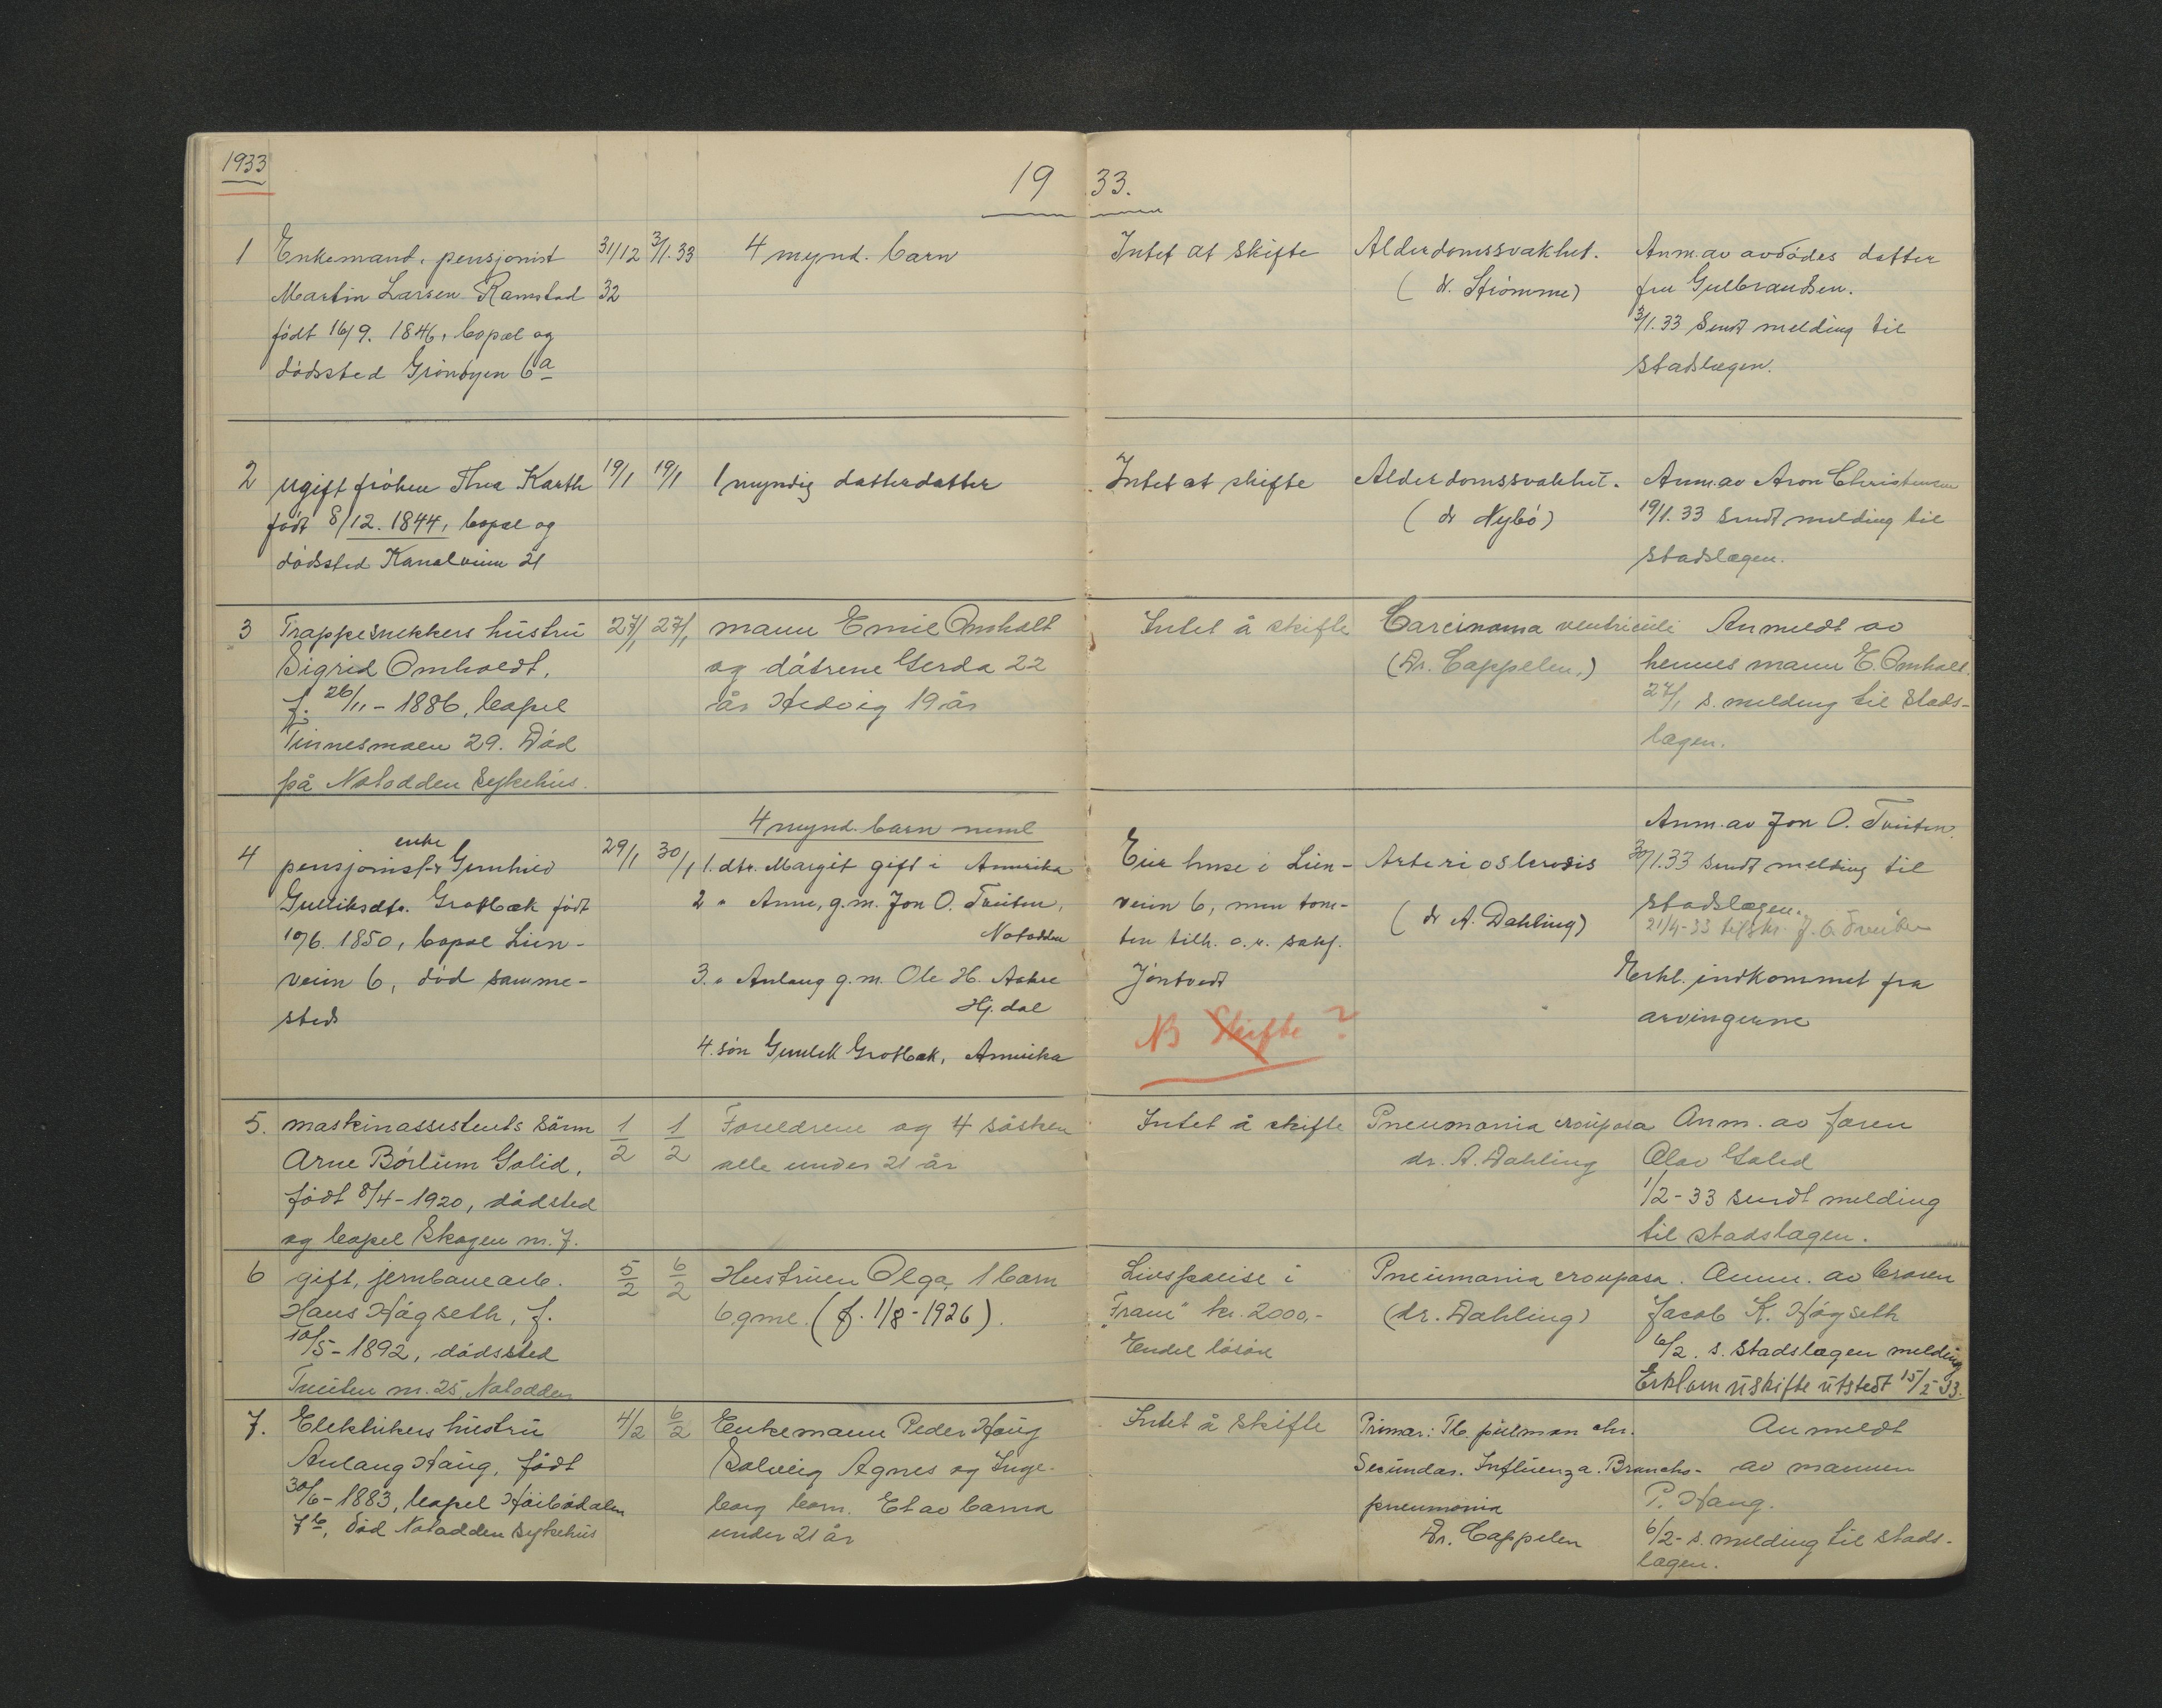 1933
19 33.
1 Enkemand, pensjonist
Martin Larsen Ramstad
født 16/9. 1846, bopæl og
dødssted Grønbyen 6a
31/12 32
3/1.33
4 mynd. barn
Intet at skifte
Alderdomssvakhet.
(dr. Strømme)
Anm. av avdødes datter
fru Gulbrandsen.
3/1.33 Sendt melding til
stadslægen.
2 ugift frøken Thea Karth
født 8/12. 1844, bopæl og
dødssted Kanalveien 21
19/1
19/1
1 myndig datterdatter
Intet at skifte
Alderdomssvakhet.
(dr Nybø)
Anm. av Aron Christensen
19/1.33 sendt melding til
stadslægen.
3 Trappesnekkers hustru
Sigrid Omholdt,
f. 26/11 - 1886, bopel
Tinnesmoen 29. Død
på Notodden sykehus.
27/1
27/1
mann Emil Omholt
og døtrene Gerda 22
år Hedvig 19 år
Intet å skifte
Carcinoma ventriculi
(Dr. Cappelen.)
Anmeldt av
hennes mann E. Omholt.
27/1 s. melding til stads-
lægen.
4 pensjonist enke Gunhild
Gulliksdtr. Grotbæk født
10/6. 1850, bopæl Lien-
veien 6, død samme-
steds
29/1
30/1
4 mynd. barn neml
1. dtr. Margit gift i Amerika
2 " Anne, g.m. Jon O. Tveiten,
Notodden
3. " Aslaug g.m. Ole H. Aakre
Hj.dal
4. søn Gunlek Grotbæk, Amerika
Eier huse i Lien-
veien 6, men tom-
ten tilh. o.r. sakf.
Jøntvedt
NB Skifte ?
Arteriosclerosis
(dr A. Dahling)
Anm. av Jon O. Tveiten.
30/1.33 sendt melding til
stadslægen.
21/4-33 tilskr. J. O. Tveiten
Erkl. indkommet fra
arvingerne
5. maskinassistents sønn
Arne Børlum Golid,
født 8/4 - 1920, dødsted
og bopel Skogen m. 7.
1/2
1/2
Foreldrene og 4 søsken
alle under 21 år
Intet å skifte
Pneumonia crouposa
dr. A. Dahling
Anm. av faren
Olav Golid
1/2 - 33 sendt melding
til stadslægen.
6 gift, jernbanearb.
Hans Høgseth, f.
10/5 - 1892, dødssted
Tveiten m. 25, Notodden
5/2
6/2
Hustruen Olga, 1 barn
6 gml. (f. 1/8 - 1926).
Livspolise i
"Fram" kr. 2000,-
Endel løsøre
Pneumonia crouposa.
(dr. Dahling)
Anm. av broren
Jacob K. Høgseth
6/2. s. stadslægen melding
Erkl om uskifte utstedt 15/2 33.
7. Elektrikers hustru
Aslaug Haug, født
30/6 - 1883, bopel Høibødalen
7b, død Notodden sykehus
4/2
6/2
Enkemann Peder Haug
Solveig Agnes og Inge-
borg barn. Et av barna
under 21 år
Intet å skifte
Primær: Tb. pulmon chr.
Secundær. Influenza. Broncho-
pneumonia
Dr. Cappelen
Anmeldt
av mannen
P. Haug.
6/2 - s. melding til stads-
lægen.